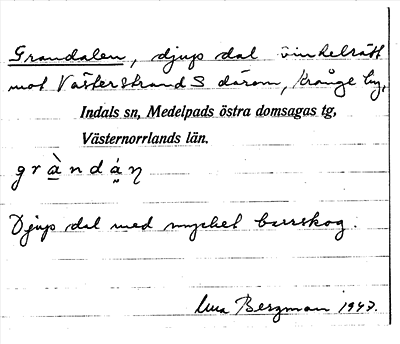 Grandalen, djup dal vinkelrätt
mot Västerstrand S därom, Krånge by,
Indals sn, Medelpads östra domsagas tg,
Västernorrlands län.
g r à n d á ɳ
Djup dal med mycket barrskog.
Bergman 1947.